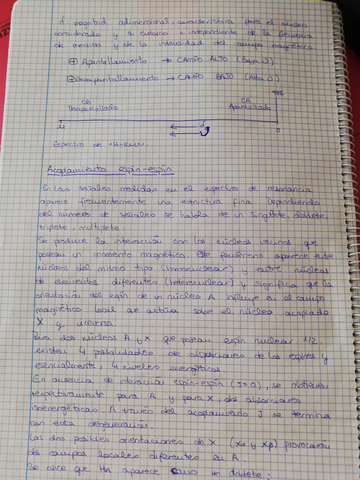 δ magnitud adimensional, característica para el núcleo
considerado y su entorno e independiente de la frecuencia
de medida y de la intensidad del campo magnético.
⊕ Apantallamiento → CAMPO ALTO (Baja δ)
⊖ Desapantallamiento → CAMPO BAJO (Alta δ)
TMS
Desapantallado Apantallado
δ
0
Espectro de ¹H-RMN.
Acoplamiento espín-espín
En las señales medidas en el espectro de resonancia
aparece frecuentemente una estructura fina. Dependiendo
del número de señales se habla de un singlete, doblete,
triplete, multiplete.
Se produce la interacción con los núcleos vecinos que
posean un momento magnético. Este fenómeno aparece entre
núcleos del mismo tipo (homonuclear) y entre núcleos
de elementos diferentes (heteronuclear) y significa que la
orientación del espín de un núcleo A influye en el campo
magnético local que actúa sobre el núcleo acoplado
X y viceversa.
Para dos núcleos A y X que poseen espín nuclear 1/2,
existen 4 posibilidades de disposiciones de los espines y
4 niveles energéticos.
En ausencia de interacción espín-espín (J=0), se obtienen
respectivamente para A y para X, dos disposiciones
isoenergéticas. A través del acoplamiento J se termina
con esta degeneración.
Las dos posibles orientaciones de X (Xα y Xβ) provocarán
campos locales diferentes en A.
Se dice que HA aparece como un doblete;